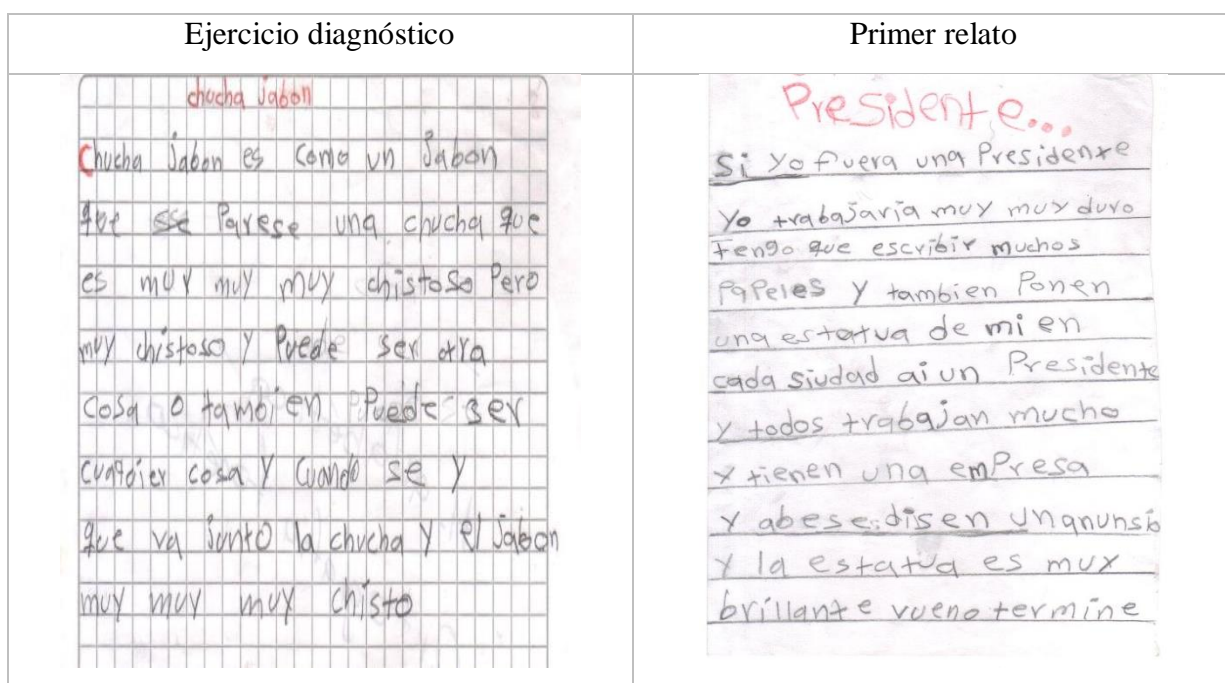 Ejercicio diagnóstico
chucha jabon
Chucha jabon es como un jabon
que se parese una chucha que
es muy muy muy chistoso Pero
muy chistoso y Puede ser otra
cosa o tambien Puede ser
cosa y cuando se y
que va junto la chucha y el jabon
muy muy muy chisto
Primer relato
Presidente...
Si yo fuera una Presidente
Yo trabajaria muy muy duro
tengo que escribir muchos
PaPeles y tambien Ponen
una estatua de mi en
cada siudad ai un Presidente
y todos trabajan mucho
y tienen una emPresa
y abese disen un anunsio
y la estatua es muy
brillante vueno termine